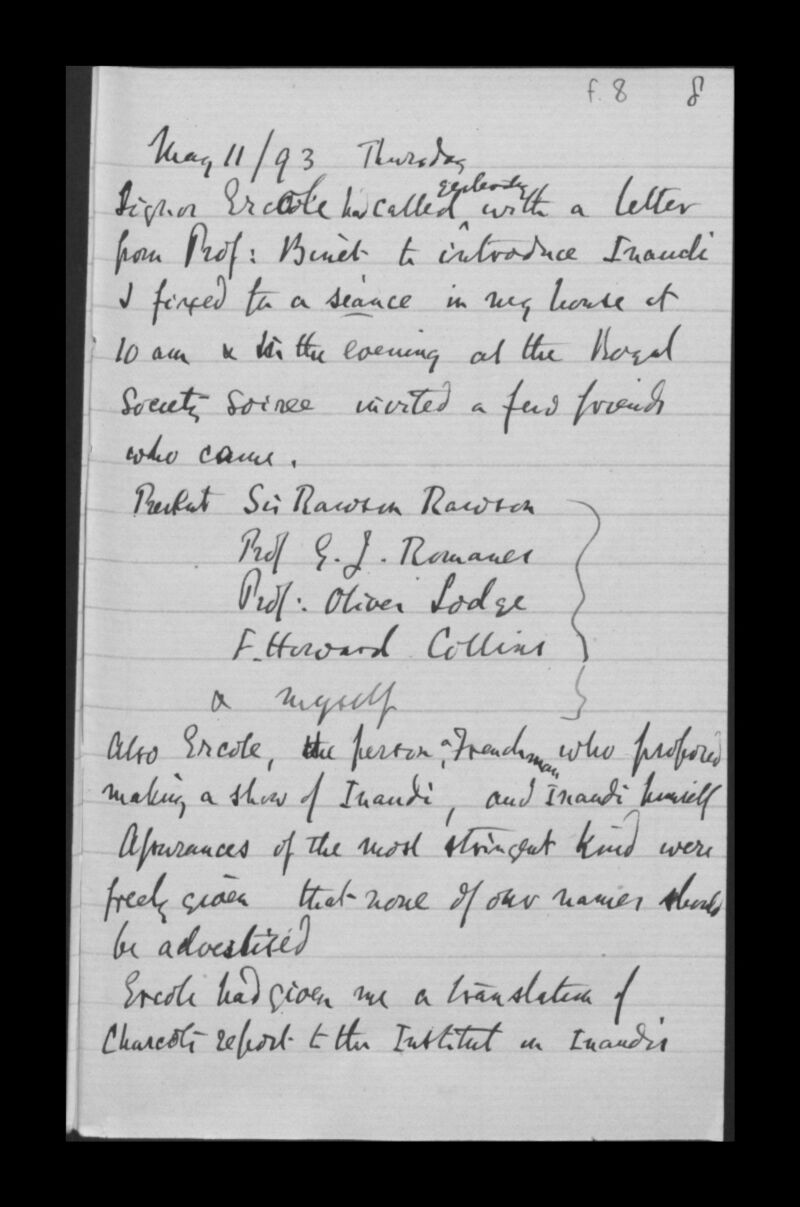 f. 8 8
May 11/93 Thursday
Signor Ercole had called yesterday with a letter
from Prof: Binet to introduce Inaudi
I fixed for a séance in my house at
10 am & in the evening at the Royal
Society Soiree invited a few friends
who came.
Present Sir Rawson Rawson
Prof G. J. Romanes
Prof: Oliver Lodge
F. Howard Collins
& myself
Also Ercole, the person, a Frenchman who proposed
making a show of Inaudi, and Inaudi himself
Assurances of the most stringent kind were
freely given that none of our names should
be advertised
Ercole had given me a translation of
Charcot's report to the Institut on Inaudi's